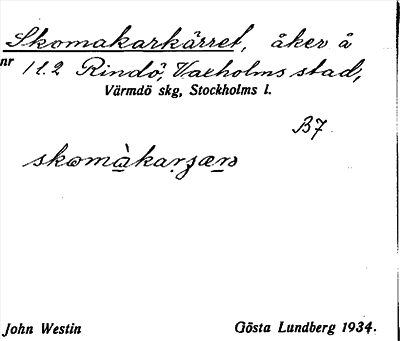 Skomakarkärret, åker å
nr 1 l. 2 Rindö, Vaxholms stad,
Värmdö skg, Stockholms l.
B7.
John Westin
Gösta Lundberg 1934.